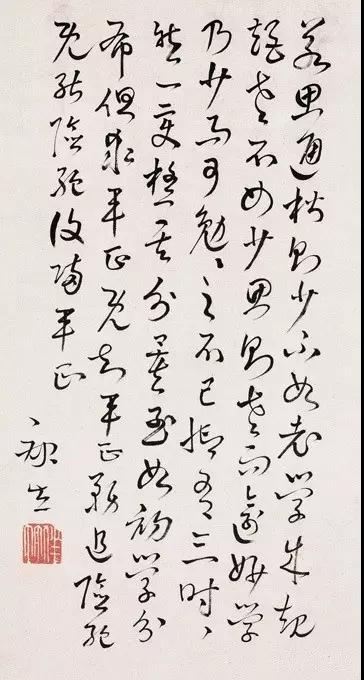 若思通楷則少不如老學成規
矩老不如少思則老而逾妙學
乃少而可勉〻之不已抑有三時〻
然一變極其分矣至如初學分
布但求平正既知平正務追險絕
既能險絕復歸平正